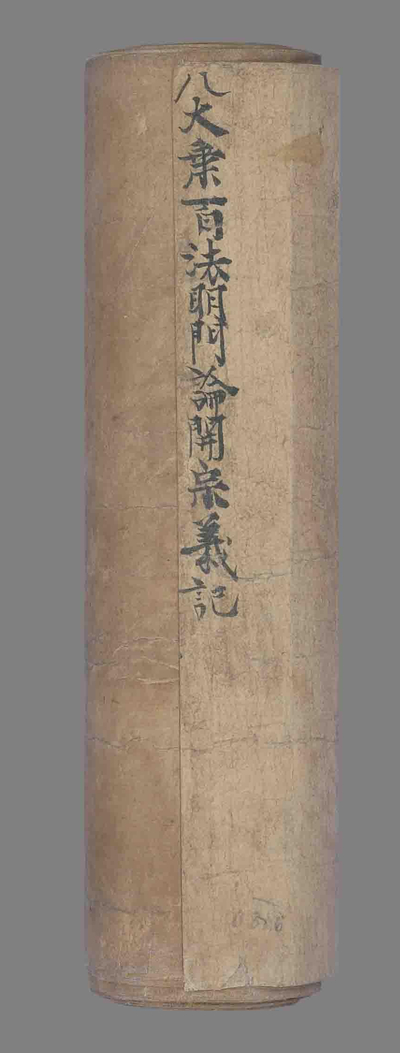 八大乗百法明門論開宗義記